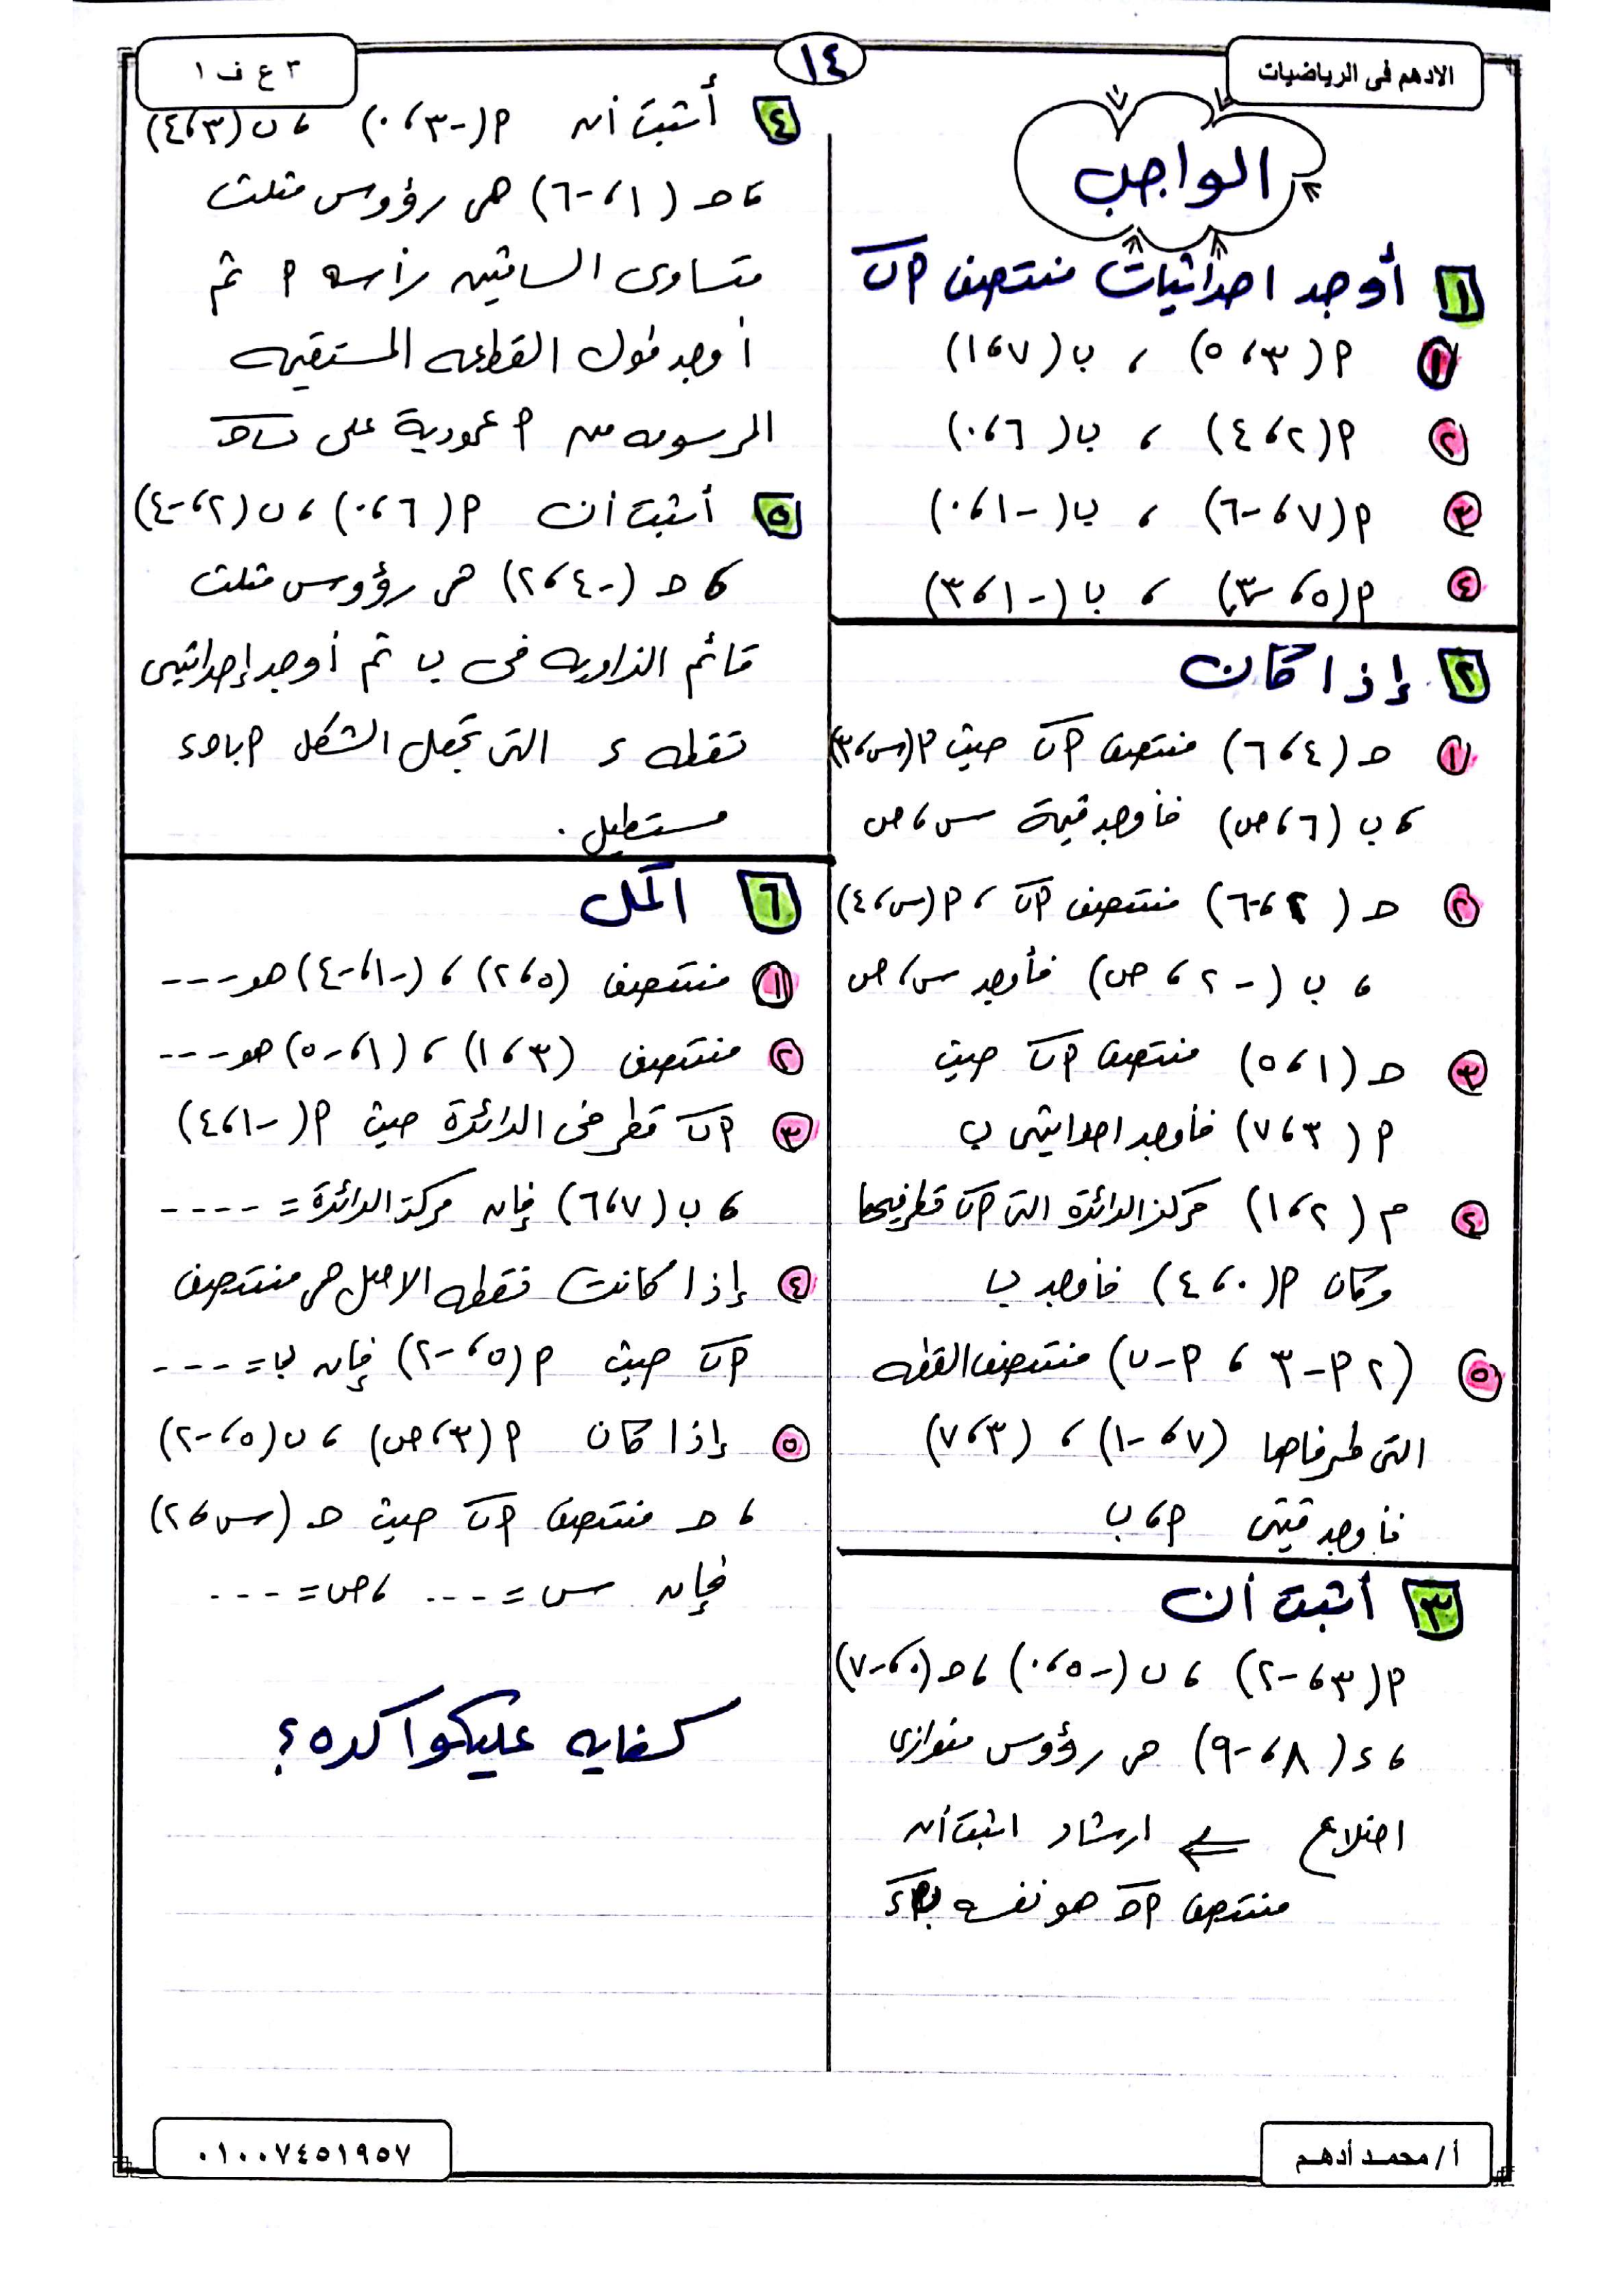 الادهم فى الرياضيات
١٤
٣ ع ف ١
الواجب
١ أوجد احداثيات منتصف اب
١ ا(٣، ٥) ، ب(٧، ١)
٢ ا(٢، ٤) ، ب(٦، ٠)
٣ ا(٧، -٦) ، ب(-١، ٠)
٤ ا(٥، -٣) ، ب(-١، ٣)
٢ إذا كان
١ حـ (٤، ٦) منتصف اب حيث ا(س، ٣)
، ب (٦، ص) فأوجد قيمة س، ص
٢ حـ (٢، -٦) منتصف اب ، ا(س، ٤)
، ب (-٢، ص) فأوجد س، ص
٣ حـ (١، ٥) منتصف اب حيث
ا (٣، ٧) فأوجد احداثيى ب
٤ م (٢، ١) مركز الدائرة التى اب قطر فيها
وكان ا(٠، ٤) فأوجد ب
٥ (٢ا-٣ ، ا-ب) منتصف القطعه
التى طرفاها (٧، -١) ، (٣، ٧)
فأوجد قيمتى ا، ب
٣ أثبت أن
ا(٣، -٢) ، ب(-٥، ٠) ، حـ(٠، -٧)
، ء(٨، -٩) هى رؤوس متوازى
اضلاع ⇐ ارشاد اثبت أن
منتصف احـ هو نفسه بء
٤ أثبت أن ا(-٣، ٠) ، ب(٣، ٤)
، حـ (١، -٦) هى رؤوس مثلث
متساوى الساقين رأسه ا ثم
أوجد طول القطعه المستقيمه
المرسومه من ا عمودية على بحـ
٥ أثبت أن ا(٦، ٠) ، ب(٢، -٤)
، حـ (-٤، ٢) هى رؤوس مثلث
قائم الزاويه فى ب ثم أوجد إحداثيى
نقطه ء التى تجعل الشكل ابحـء
مستطيل .
٦ اكمل
١ منتصف (٥، ٢) ، (-١، -٤) هو ----
٢ منتصف (٣، ١) ، (١، -٥) هو ----
٣ اب قطر فى الدائرة حيث ا(-١، ٤)
، ب (٧، ٦) فإن مركز الدائرة = ----
٤ إذا كانت نقطه الاصل هى منتصف
اب حيث ا(٥، -٢) فإن ب = ----
٥ إذا كان ا(٣، ص) ، ب(٥، -٢)
، حـ منتصف اب حيث حـ (س، ٢)
فإن س = --- ، ص = ---
كفايه عليكوا كده ؟
أ / محمد أدهم
٠١٠٠٧٤٥١٩٥٧